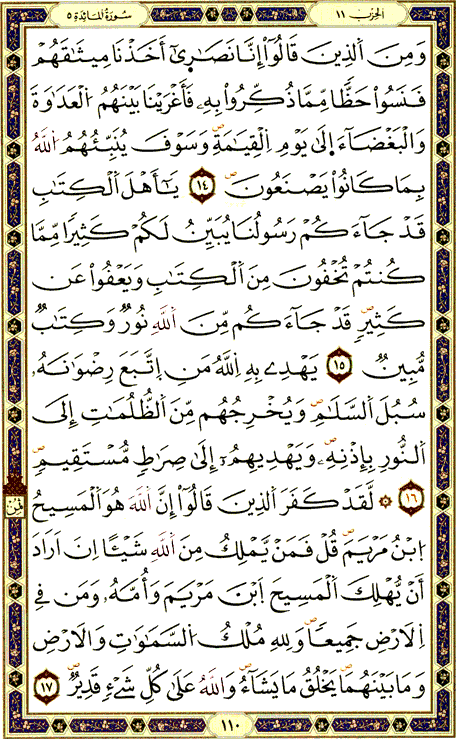 الحزب ١١
سُورَةُ المَائِدَة ٥
وَمِنَ اَ۬لذِينَ قَالُوٓاْ إِنَّا نَصَٰر۪ىٰٓ أَخَذْنَا مِيثَٰقَهُمْ
فَنَسُواْ حَظّاٗ مِّمَّا ذُكِّرُواْ بِهِۦ فَأَغْرَيْنَا بَيْنَهُمُ اُ۬لْعَدَاوَةَ
وَالْبَغْضَآءَ اِلَىٰ يَوْمِ اِ۬لْقِيَٰمَةِۖ وَسَوْفَ يُنَبِّئُهُمُ اُ۬للَّهُ
بِمَا كَانُواْ يَصْنَعُونَۖ ١٤ يَٰٓأَهْلَ اَ۬لْكِتَٰبِ
قَدْ جَآءَكُمْ رَسُولُنَا يُبَيِّنُ لَكُمْ كَثِيراٗ مِّمَّا
كُنتُمْ تُخْفُونَ مِنَ اَ۬لْكِتَٰبِ وَيَعْفُواْ عَن
كَثِيرٖۖ قَدْ جَآءَكُم مِّنَ اَ۬للَّهِ نُورٞ وَكِتَٰبٞ
مُّبِينٞ ١٥ يَهْدِے بِهِ اِ۬للَّهُ مَنِ اِ۪تَّبَعَ رِضْوَٰنَهُۥ
سُبُلَ اَ۬لسَّلَٰمِۖ وَيُخْرِجُهُم مِّنَ اَ۬لظُّلُمَٰتِ إِلَى
اَ۬لنُّورِ بِإِذْنِهِۦۖ وَيَهْدِيهِمُۥٓ إِلَىٰ صِرَٰطٖ مُّسْتَقِيمٖۖ
١٦ ۞ لَّقَدْ كَفَرَ اَ۬لذِينَ قَالُوٓاْ إِنَّ اَ۬للَّهَ هُوَ اَ۬لْمَسِيحُ
اُ۪بْنُ مَرْيَمَۖ قُلْ فَمَنْ يَّمْلِكُ مِنَ اَ۬للَّهِ شَيْـٔاً اِنَ اَرَادَ
أَنْ يُّهْلِكَ اَ۬لْمَسِيحَ اَ۪بْنَ مَرْيَمَ وَأُمَّهُۥ وَمَن فِے
اِ۬لَارْضِ جَمِيعاٗۖ وَلِلهِ مُلْكُ اُ۬لسَّمَٰوَٰتِ وَالَارْضِ
وَمَا بَيْنَهُمَاۖ يَخْلُقُ مَا يَشَآءُۖ وَاللَّهُ عَلَىٰ كُلِّ شَےْءٖ قَدِيرٞۖ ١٧
١١٠